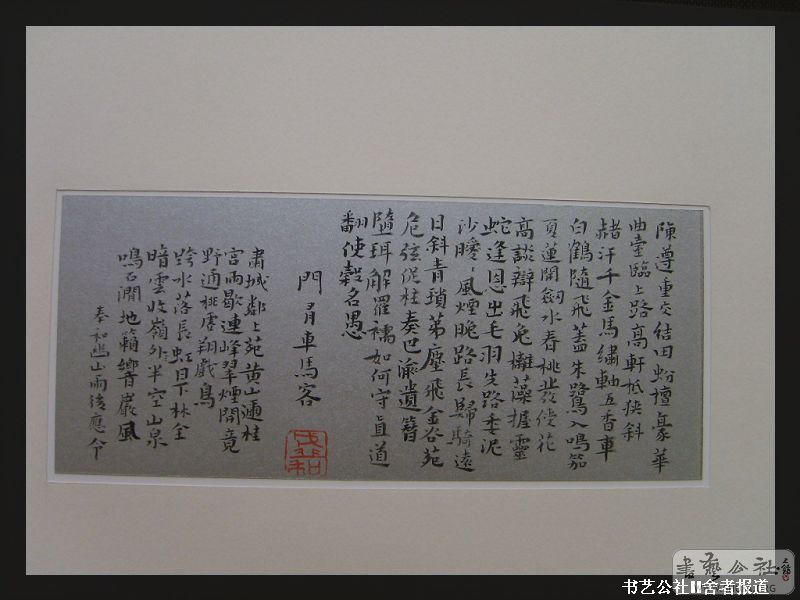 陳遵重交結田蚡壇豪華
曲臺臨上路高軒抵狹斜
赭汗千金馬繡軸五香車
白鶴隨飛蓋朱鷺入鳴笳
夏蓮開劍水春桃發綬花
高談辯飛兔摛藻握靈
蛇逢恩出毛羽失路委泥
沙曖〻風煙晚路長歸騎遠
日斜青瑣第塵飛金谷苑
危弦促柱奏巴渝遺簪
墮珥解羅襦如何守直道
翻使穀名愚
門有車馬客
肅城鄰上苑黃山邇桂
宮雨歇連峰翠煙開竟
野通排虛翔戲鳥
跨水落長虹日下林全
暗雲收嶺外半空山泉
鳴石澗地籟響巖風
奉和幽山雨後應令
書藝公社
书艺公社II舍者报道